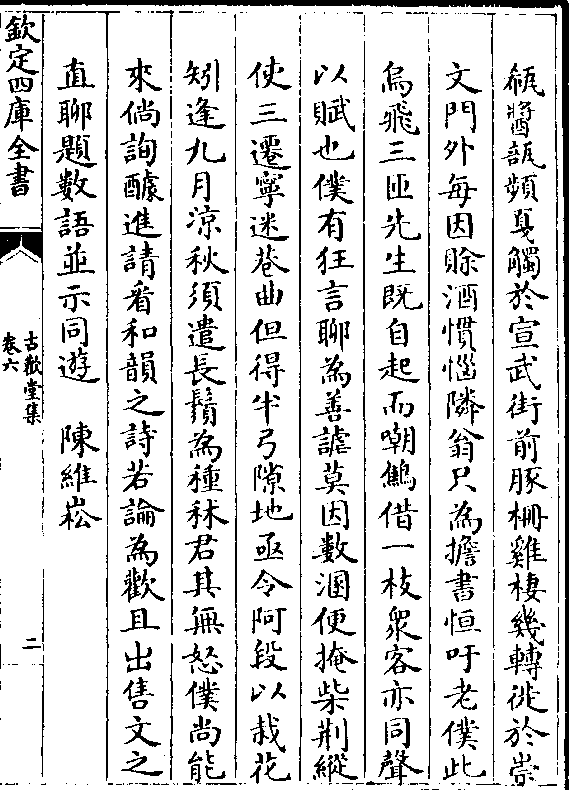 瓻醬瓿頻戛觸於宣武街前豚柵雞棲幾轉徙於崇
文門外每因賒酒慣惱隣翁只為擔書恒吁老僕此
烏飛三匝先生既自起而嘲鷦借一枝衆客亦同聲
以賦也僕有狂言聊為善謔莫因數溷便掩柴荆縱
使三遷寧迷巷曲但得半弓隙地亟令阿段以栽花
矧逢九月凉秋須遣長鬚為種秫君其無怒僕尚能
來倘詢醵進請看和韻之詩若論為歡且出售文之
直聊題數語並示同遊　陳維崧
欽定四庫全書
古歡堂集
卷六
二